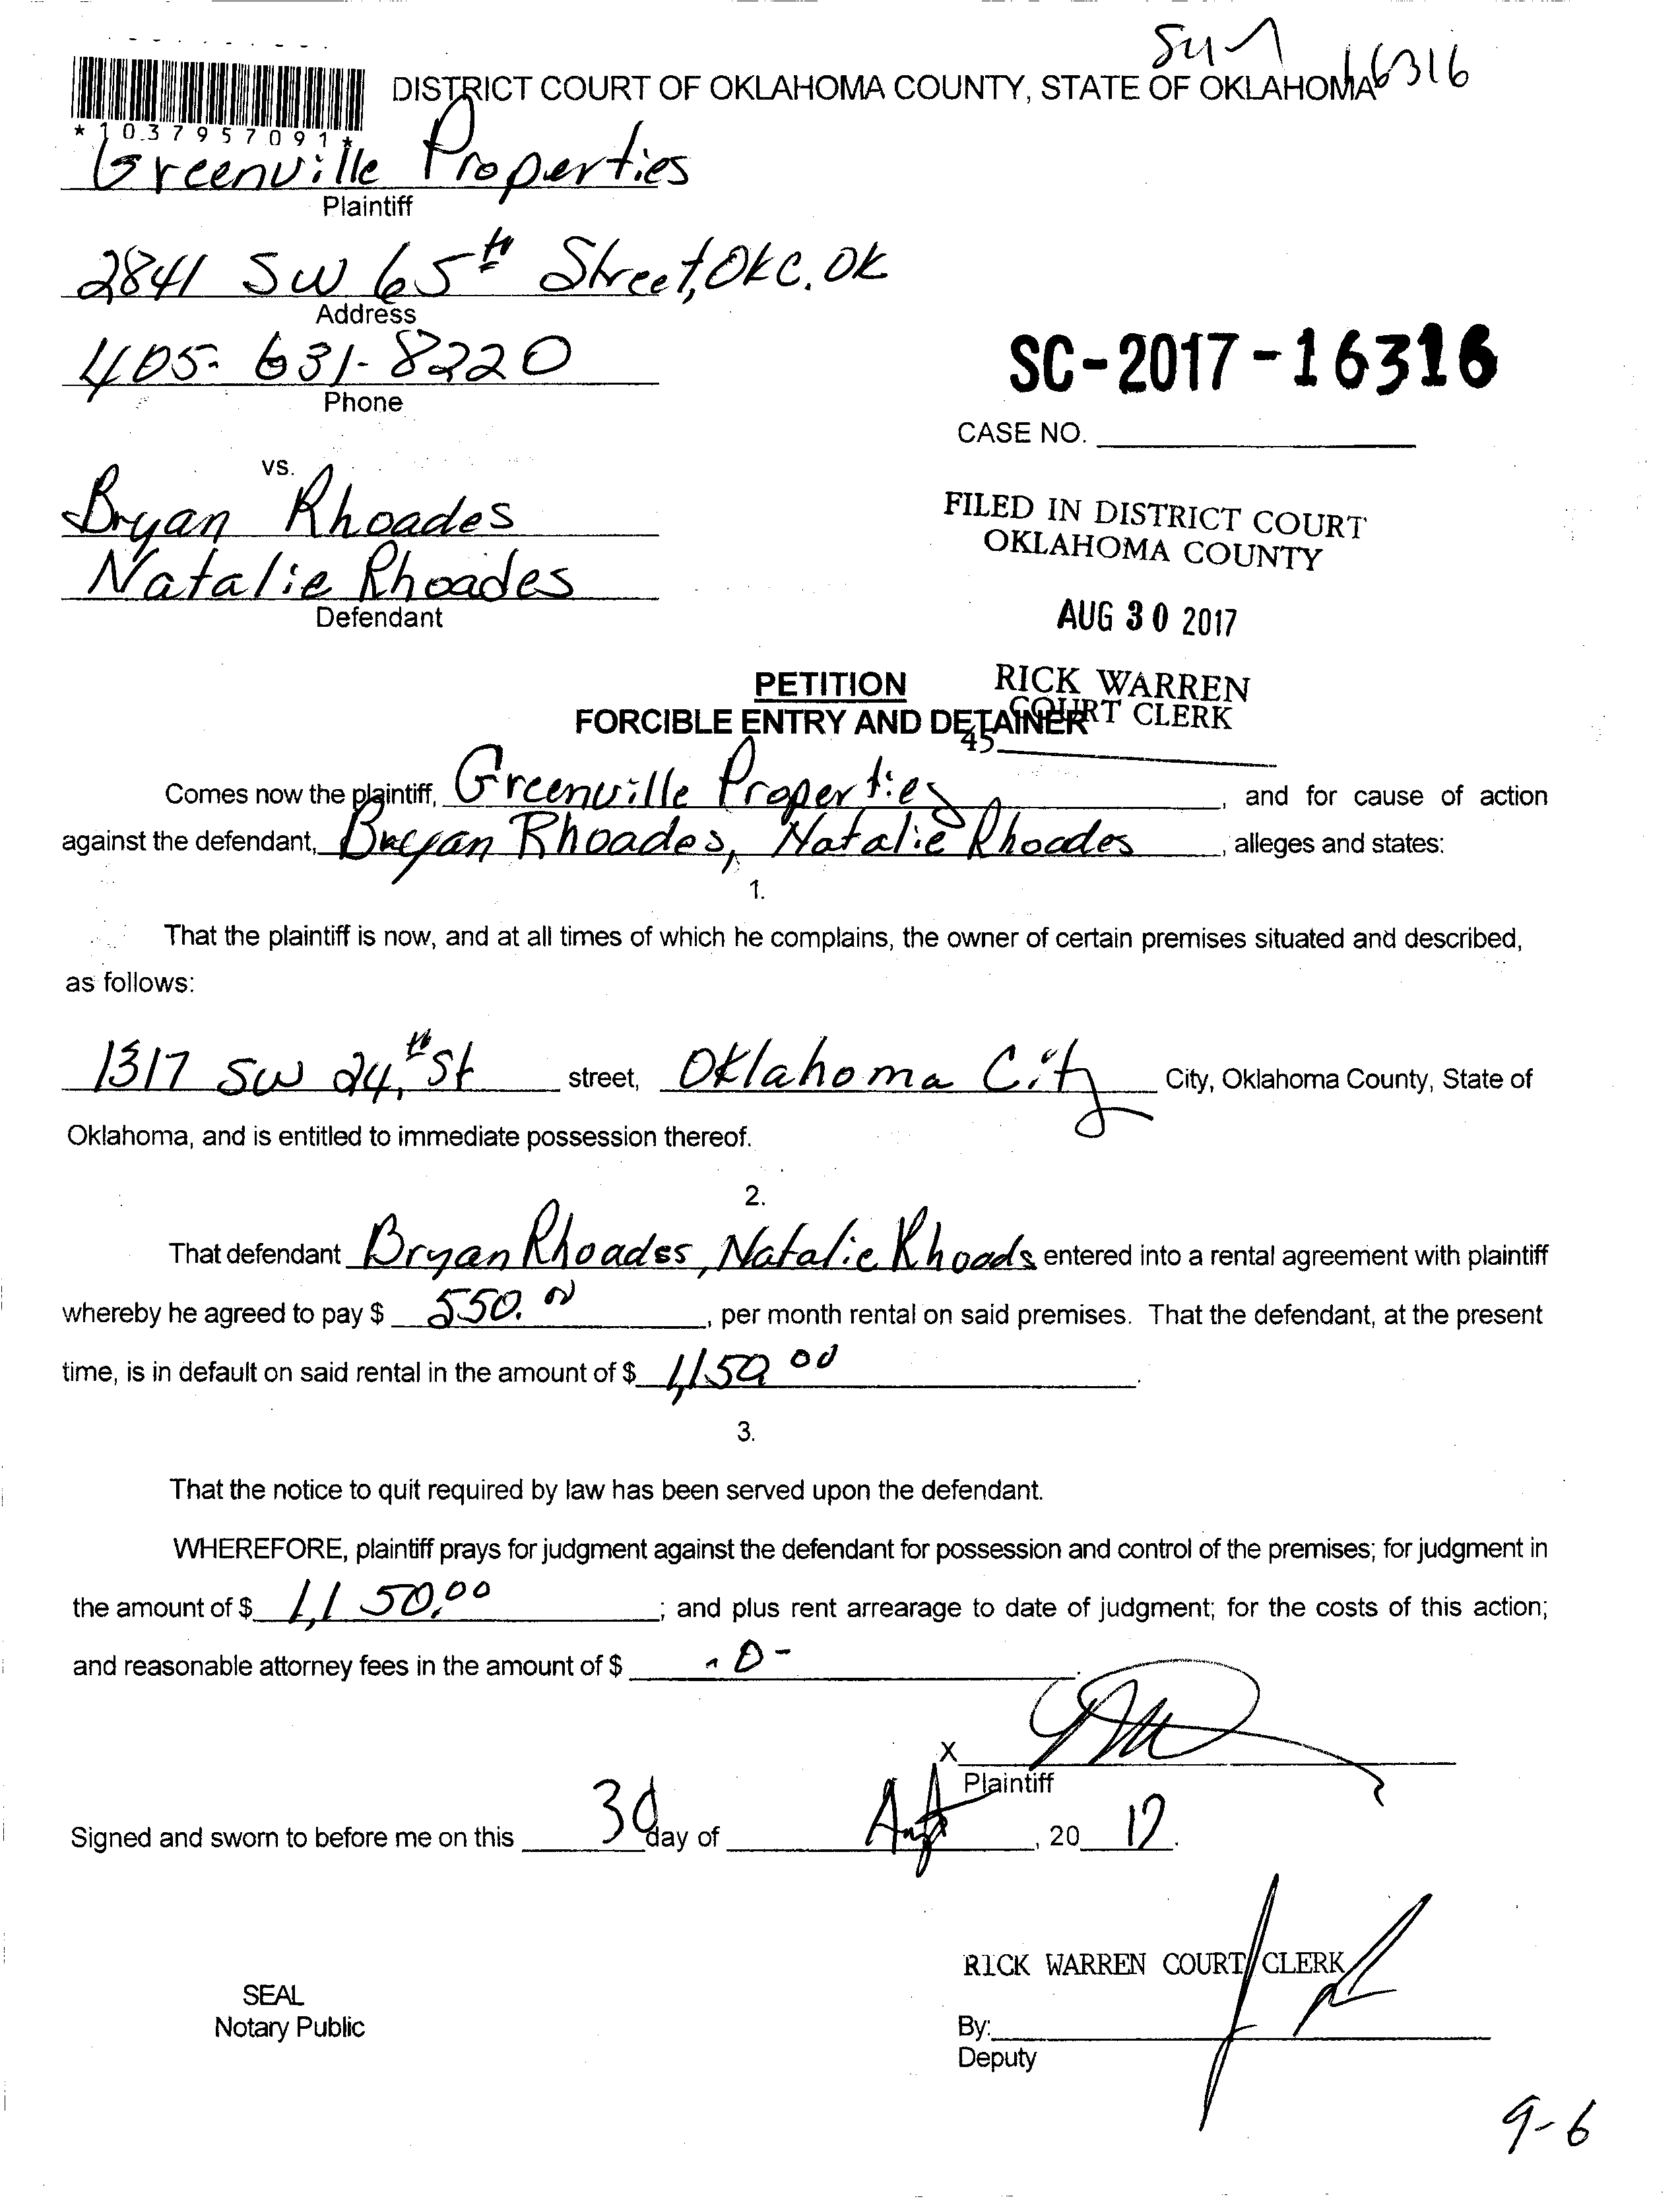 16316
DISTRICT COURT OF OKLAHOMA COUNTY, STATE OF OKLAHOMA
*1037957091*
Greenville Properties
Plaintiff
2841 SW 65th Street, OKC. OK
Address
405-631-8220
Phone
SC-2017-16316
CASE NO.
vs.
Bryan Rhoades
Natalie Rhoades
Defendant
FILED IN DISTRICT COURT
OKLAHOMA COUNTY
AUG 30 2017
RICK WARREN
COURT CLERK
45
PETITION
FORCIBLE ENTRY AND DETAINER
Comes now the plaintiff, Greenville Properties, and for cause of action
against the defendant, Bryan Rhoades, Natalie Rhoades, alleges and states:
1.
That the plaintiff is now, and at all times of which he complains, the owner of certain premises situated and described,
as follows:
1317 SW 24th St street, Oklahoma City City, Oklahoma County, State of
Oklahoma, and is entitled to immediate possession thereof.
2.
That defendant Bryan Rhoades, Natalie Rhoads entered into a rental agreement with plaintiff
whereby he agreed to pay $ 550.00, per month rental on said premises. That the defendant, at the present
time, is in default on said rental in the amount of $ 1,150.00.
3.
That the notice to quit required by law has been served upon the defendant.
WHEREFORE, plaintiff prays for judgment against the defendant for possession and control of the premises; for judgment in
the amount of $ 1,150.00; and plus rent arrearage to date of judgment; for the costs of this action;
and reasonable attorney fees in the amount of $ -0-.
X
Plaintiff
Signed and sworn to before me on this 30 day of Aug, 2017.
RICK WARREN COURT CLERK
SEAL
Notary Public
By:
Deputy
9-6